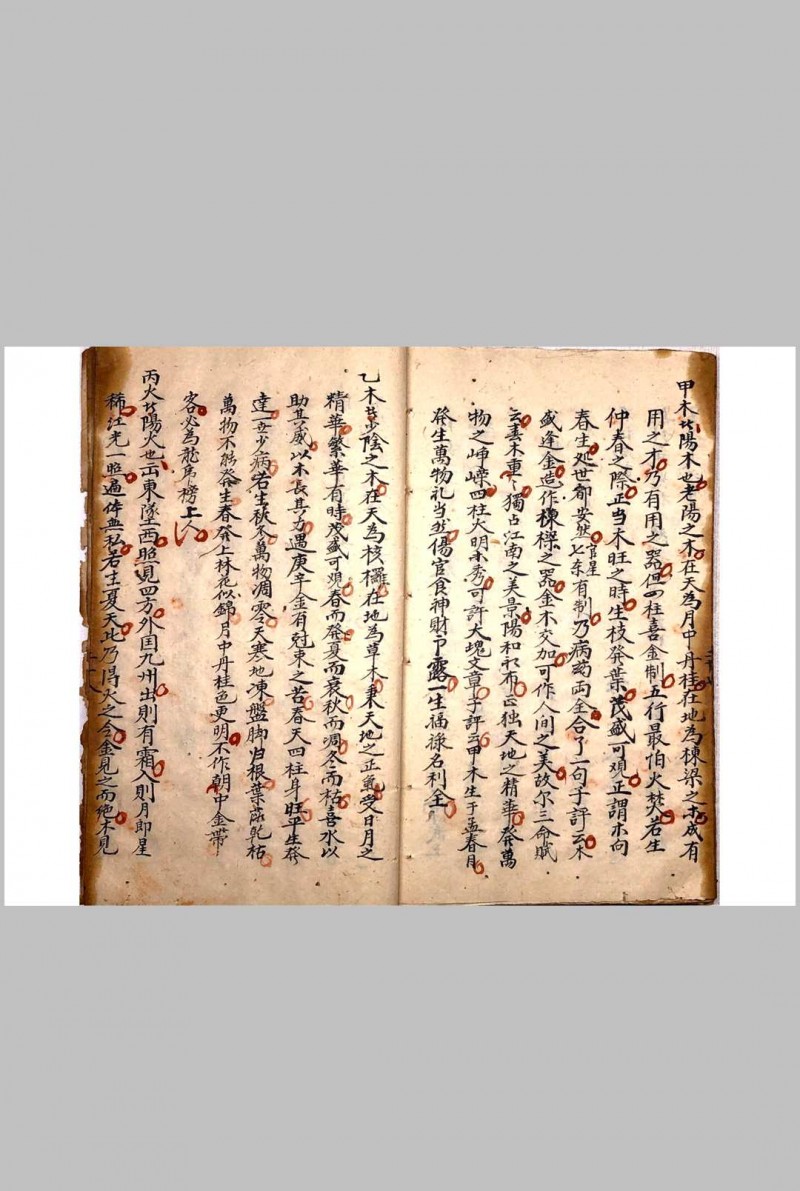 甲木者陽木也老陽之木在天為月中丹桂在地為棟梁之木成有
用之才乃有用之器但四柱喜金制五行最怕火焚若生
仲春之際正当木旺之時生枝発葉茂盛可观正謂木向
春生处世都安然官星七杀有制乃病药両全合了一句子評云木
盛逢金造作棟樑之器金木交加可作人间之美故尔三命賦
云春木重〻獨占江南之美景陽和初布占独天地之精華發萬
物之峥嵘四柱火明木秀可許大塊文章子評云甲木生于孟春月
發生萬物礼当然傷官食神財卩露一生福祿名利全
乙木者少陰之木在天為桫欏在地為草木秉天地之正氣受日月之
精華繁華有時茂盛可观春而發夏而衰秋而凋冬而枯喜水以
助其威以木長其力遇庚辛金有尅束之苦春天四柱身旺平生發
達一世少病若生秋冬萬物凋零天寒地凍盤脚归根葉落乾枯
萬物不能發生春發上林花似錦月中丹桂色更明不作朝中金帶
客必為龍虎榜上人
丙火者陽火也出東墜西照見四方外国九州出則有霜入則月即星
稀江光一照過体無私若生夏天此乃得火之令金見之而绝木見